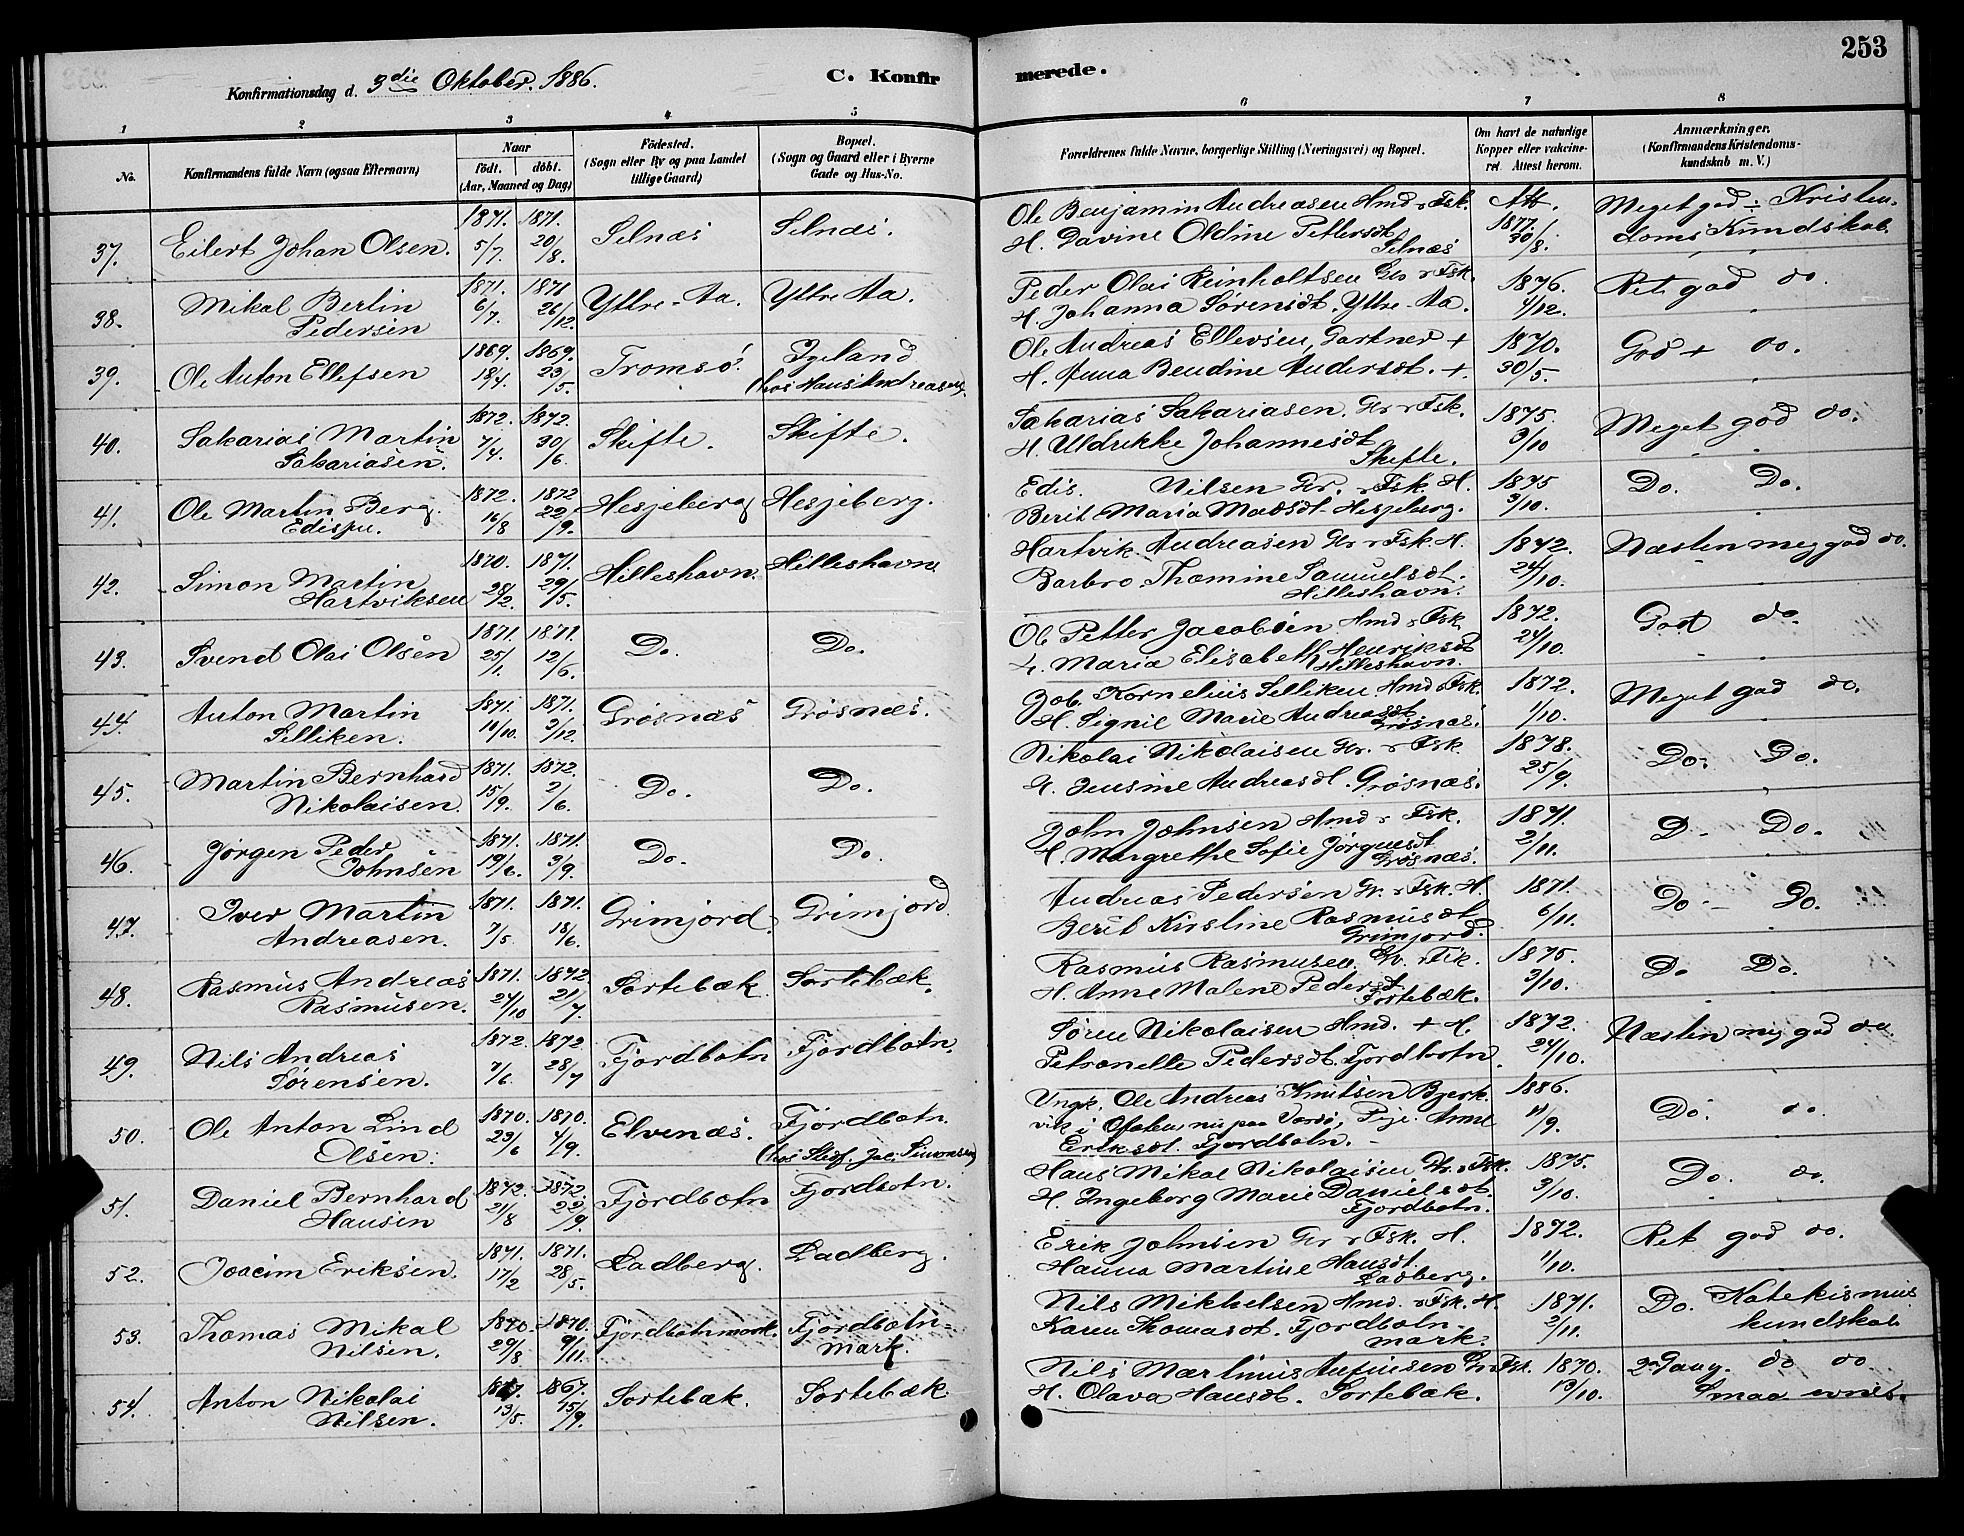 253
Konfirmationsdag d. 3die Oktober. 1886.
C. Konfirmerede.
1 2 3 4 5 6 7 8
No. Konfirmandens fulde Navn (ogsaa Efternavn) Naar født. døbt. (Aar, Maaned og Dag) Fødested. (Sogn eller By og paa Landet tillige Gaard) Bopæl. (Sogn og Gaard eller i Byerne Gade og Hus-No. Forældrenes fulde Navne, borgerlige Stilling (Næringsvei) og Bopæl. Om havt de naturlige Kopper eller vakcineret. Attest herom. Anmærkninger. (Konfirmandens Kristendomskundskab m. V.)
37. Eilert Johan Olsen. 1871. 5/7. 1871. 20/8. Selnæs Selnæs. Ole Benjamin Andreasen Hmd & Fsk. H. Davine Oldine Pettersdt Selnæs Att. 1877. 30/8. Meget god ÷ Kristendoms Kundskab.
38. Mikal Berlin Pedersen 1871. 6/7. 1871 26/12. Yttre-Aa. Yttre Aa. Peder Olai Reinholtsen Gr & Fsk. H. Johanna Sørensdt. Yttre-Aa. 1876. 4/12. Ret god do.
39. Ole Anton Ellefsen 1869. 18/4. 1869. 23/5. Tromsø. Igeland (hos Hans Andreasen). Ole Andreas Ellevsen, Gartner + H. Anna Bendine Andersdt. +. 1870. 30/5. God + do.
40. Sakarias Martin Sakariasen. 1872. 7/4. 1872. 30/6. Skifte. Skifte. Sakarias Sakariasen. Gr & Fsk. H. Uldrikke Johannesdt Skifte. 1875. 3/10 Meget god do.
41. Ole Martin Berg Edispn. 1872. 16/8 1872 22/9. Hesjeberg Hesjeberg. Edis. Nilsen Gr. & Fsk. H. Berit Maria Madsdt. Hesjeberg. 1875 3/10. Do. Do.
42. Simon Martin Hartviksen 1870. 28/2. 1871. 29/5. Hilleshavn. Hilleshavn. Hartvik Andreasen Gr & Fsk. H. Barbro Thomine Samuelsdt. Hilleshavn. 1872. 24/10. Næsten meg god do.
43. Svend Olai Olsen 1871. 25/1. 1871. 12/6. Do. Do. Ole Petter Jacobsen Hmd & Fsk H. Maria Elisabeth Henriksdt Hilleshavn. 1872. 24/10. God do.
44. Anton Martin Selliken. 1871. 11/10. 1871. 3/12. Grøsnæs Grøsnæs. Job. Kornelius Selliken Hmd & Fsk. H. Signil Marie Andreasdt Grøsnæs. 1872. 1/10. Meget god do.
45. Martin Bernhard Nikolaisen. 1871. 15/9. 1872. 2/6. Do. Do. Nikolai Nikolaisen Gr. & Fsk. H. Jensine Andreasdt. Grøsnæs. 1878. 25/9. Do. Do.
46. Jørgen Peder Johnsen 1871. 19/6. 1871. 3/9. Do. Do. John Johnsen Hmd & Fsk. H. Margrethe Sofie Jørgensdt Grøsnæs. 1871. 2/11. D - Do.
47. Iver Martin Andreasen. 1871. 7/5. 1871. 18/6. Grimjord. Grimjord. Andreas Pedersen Gr. & Fsk. H. Berit Kirstine Rasmusdt Grimjord. 1871. 6/11. Do - Do.
48. Rasmus Andreas Rasmusen. 1871. 24/10 1872. 21/7. Sortebæk Sortebæk. Rasmus Rasmusen. Gr. & Fsk. H. Anne Malene Pedersdt Sortebæk. 1875. 3/10. Do Do.
49. Nils Andreas Sørensen. 1872. 7/6. 1872. 28/7 Fjordbotn Fjordbotn. Søren Nikolaisen Hmd. + H. Petronelle Pedersdt. Fjordbotn. 1872. 24/10. Næsten meg god do
50. Ole Anton Lind Olsen. 1870. 23/6 1870. 4/9. Elvenæs. Fjordbotn. (hos Stedf. Jac. Simonsen) Ungk. Ole Andreas Knutsen Bjerkvik i Ofoten, nu paa Vardø, Pige Anne Eriksdt. Fjordbotn. - 1886. 11/9. Do. do.
51. Daniel Bernhard Hansen 1872. 21/8 1872. 22/9. Fjordbotn Fjordbotn. Hans Mikal Nikolaisen Gr. & Fsk. H. Ingeborg Marie Danielsdt. Fjordbotn. 1875. 3/10. Do. do.
52. Joacim Eriksen. 1871. 17/2 1871. 28/5. Ladberg. Ladberg. Erik Johnsen Gr & Fsk. H. Hanna Martine Hansdt. Ladberg. 1872. 1/10. Ret god do.
53. Thomas Mikal Nilsen. 1870. 29/8 1870. 9/11. Fjordbotnmark. Fjordbotn=mark. Nils Mikkelsen Hmd. & Fsk. H. Karen Thomasdt. Fjordbotn-mark. 1871. 2/11. Do. Katekismus kundskab
54. Anton Nikolai Nilsen. 1867. 13/5. 1867. 15/9. Sortebæk. Sortebæk Nils Martinus Anfinsen Gr & Fsk. H. Olava Hansdt. Sortebæk. 1870. 13/10. 2n Gang. do do Smaa evner.